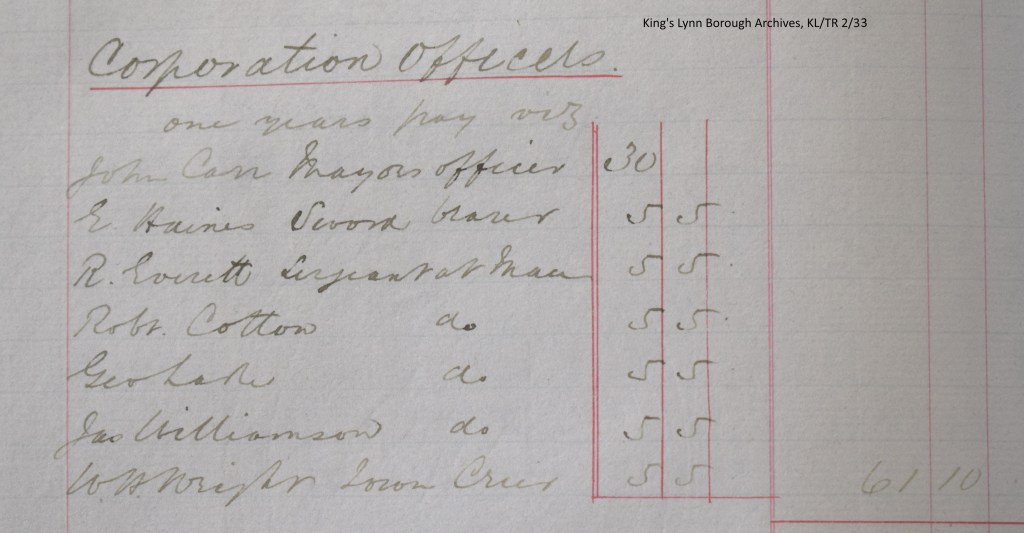 King's Lynn Borough Archives, KL/TR 2/33
Corporation Officers.
one years pay viz
John Carr Mayors officer 30
E. Haines Sword bearer 5 5
R. Everett Sergeant at Mace 5 5
Robt. Cotton do 5 5
Geo Lake do 5 5
Jas Williamson do 5 5
W.H. Wright Town Crier 5 5 61 10